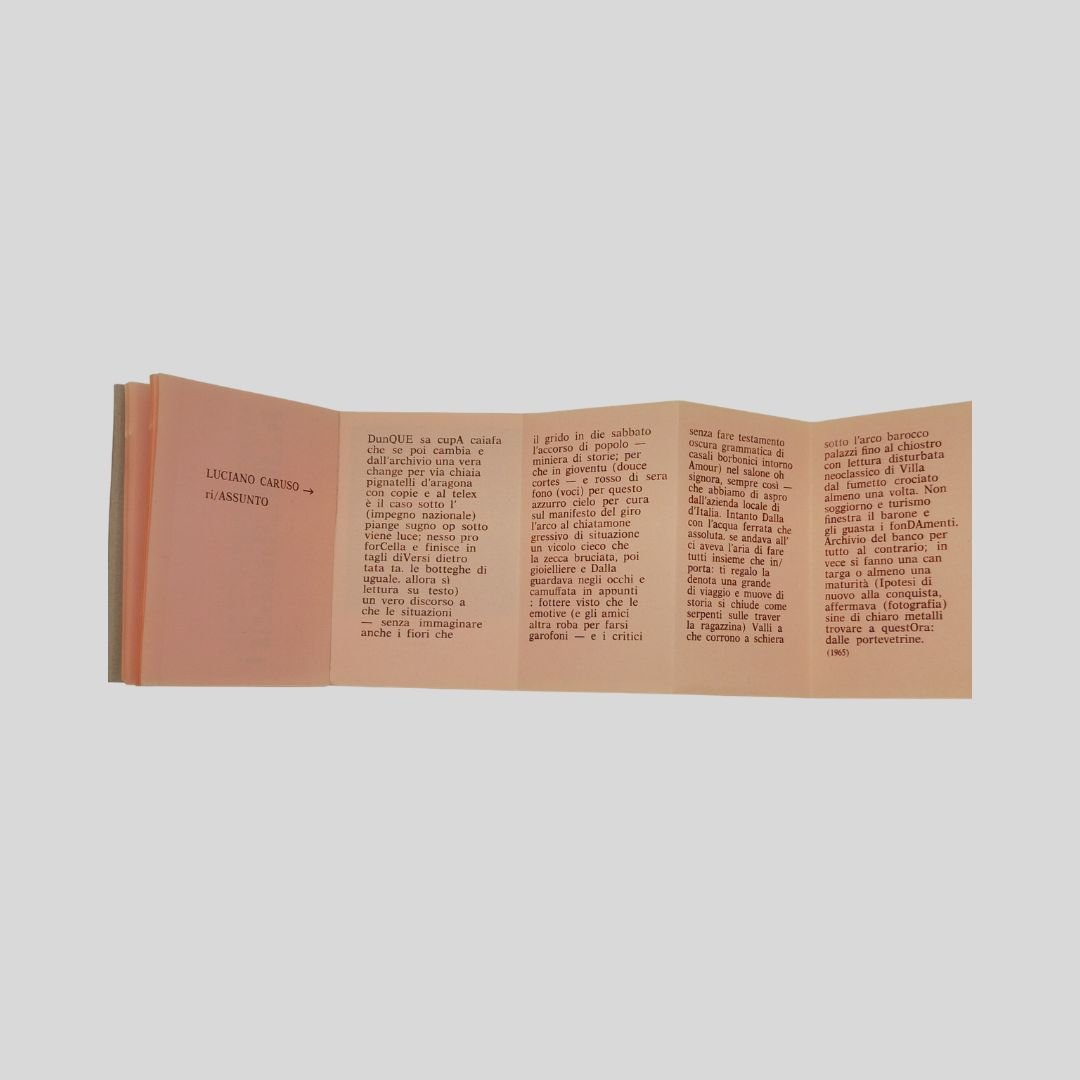 LUCIANO CARUSO →
ri/ASSUNTO
DunQUE sa cupA caiafa
che se poi cambia e
dall'archivio una vera
change per via chiaia
pignatelli d'aragona
con copie e al telex
è il caso sotto l'
(impegno nazionale)
piange sugno op sotto
viene luce; nesso pro
forCella e finisce in
tagli diVersi dietro
tata ta. le botteghe di
uguale. allora sì
lettura su testo)
un vero discorso a
che le situazioni
— senza immaginare
anche i fiori che
il grido in die sabbato
l'accorso di popolo —
miniera di storie; per
che in gioventu (douce
cortes — e rosso di sera
fono (voci) per questo
azzurro cielo per cura
sul manifesto del giro
l'arco al chiatamone
gressivo di situazione
un vicolo cieco che
la zecca bruciata, poi
gioielliere e Dalla
guardava negli occhi e
camuffata in appunti
: fottere visto che le
emotive (e gli amici
altra roba per farsi
garofoni — e i critici
senza fare testamento
oscura grammatica di
casali borbonici intorno
Amour) nel salone oh
signora, sempre così —
che abbiamo di aspro
dall'azienda locale di
d'Italia. Intanto Dalla
con l'acqua ferrata che
assoluta. se andava all'
ci aveva l'aria di fare
tutti insieme che in/
porta: ti regalo la
denota una grande
di viaggio e muove di
storia si chiude come
serpenti sulle traver
la ragazzina) Valli a
che corrono a schiera
sotto l'arco barocco
palazzi fino al chiostro
con lettura disturbata
neoclassico di Villa
dal fumetto crociato
almeno una volta. Non
soggiorno e turismo
finestra il barone e
gli guasta i fonDAmenti.
Archivio del banco per
tutto al contrario; in
vece si fanno una can
targa o almeno una
maturità (Ipotesi di
nuovo alla conquista,
affermava (fotografia)
sine di chiaro metalli
trovare a questOra:
dalle portevetrine.
(1965)